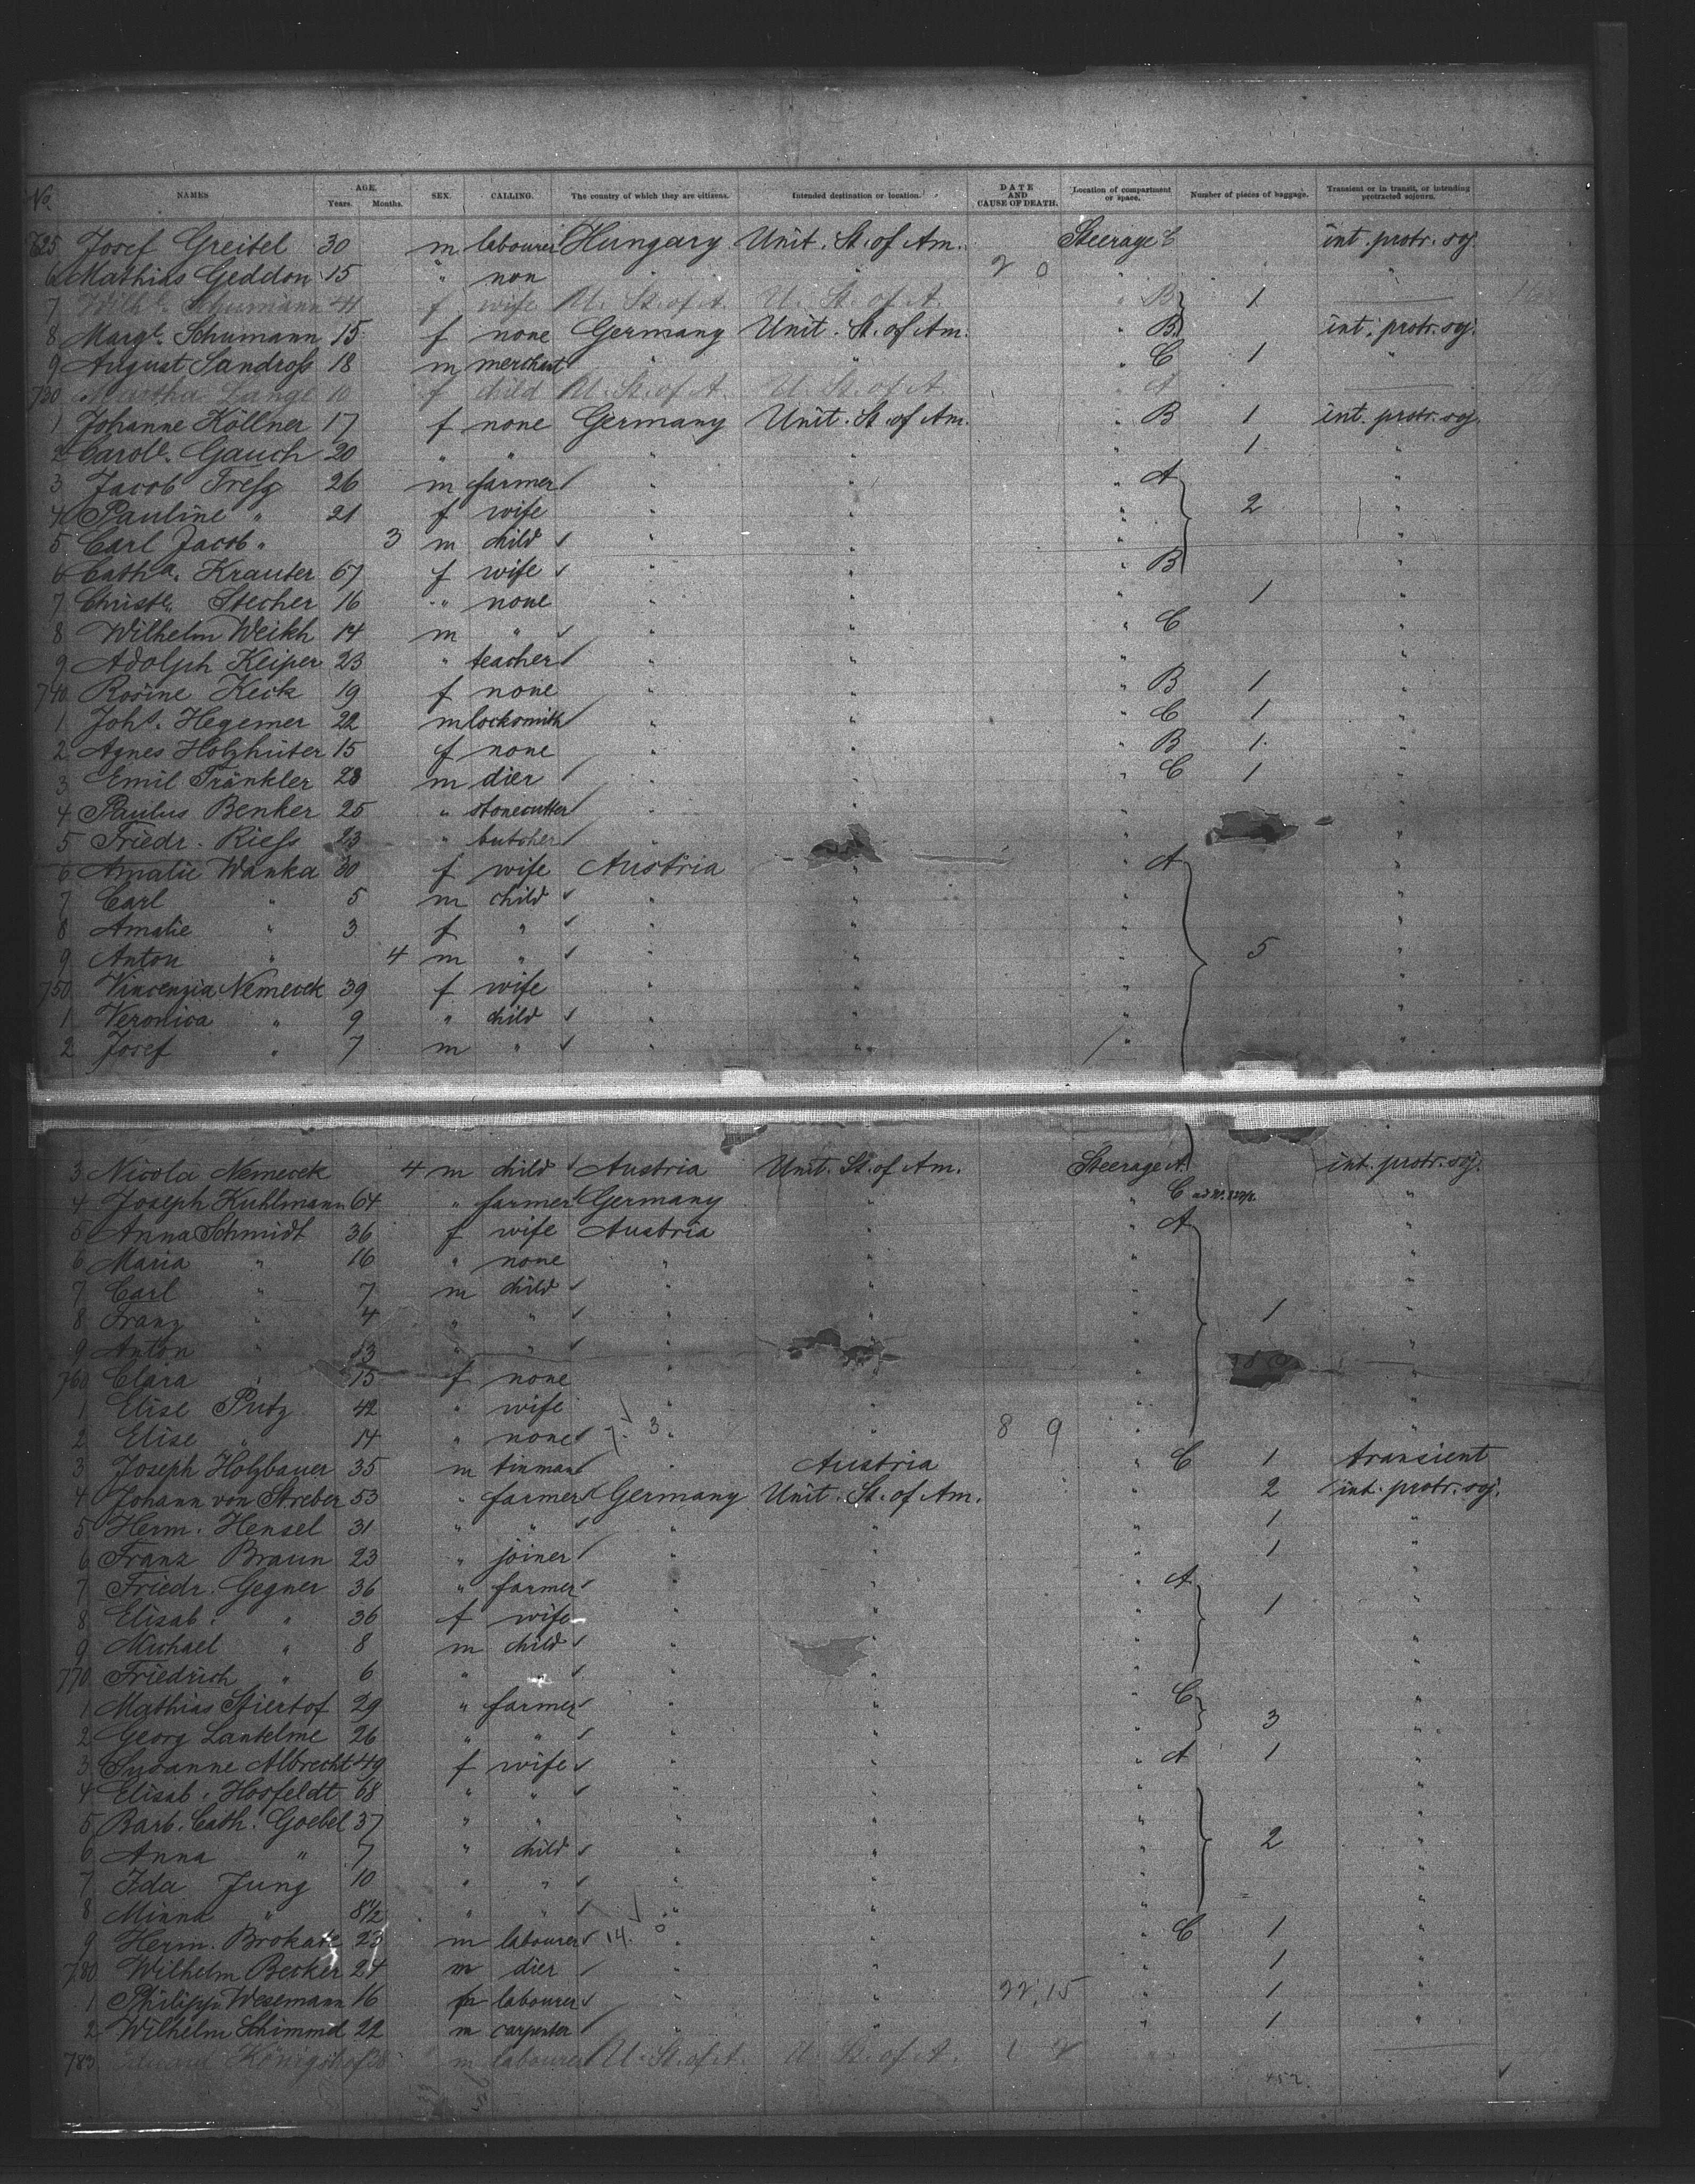 No. NAMES AGE. Years. Months. SEX. CALLING. The country of which they are citizens. Intended destination or location. DATE AND CAUSE OF DEATH. Location of compartment or space. Number of pieces of baggage. Transient or in transit, or intending protracted sojourn.
725 Josef Greitel 30 m labourer Hungary Unit. St. of Am. Steerage C int. protr. soj.
6 Mathias Geddon 15 " non " " 2 0 " "
7 Wilhe. Schumann 41 f wife U. St. of A. U. St. of A. " B 1
8 Marge. Schumann 15 f none Germany Unit. St. of Am. " B int. protr. soj.
9 August Sandross 18 m merchant " " " C 1 "
730 Martha Lange 10 f child U. St. of A. U. St. of A. " A
1 Johanne Köllner 17 f none Germany Unit. St. of Am. " B 1 int. protr. soj.
2 Carole. Gauch 20 " " " " " 1 "
3 Jacob 26 m farmer " " " A "
4 Pauline " 21 f wife " " " 2 "
5 Carl Jacob " 3 m child " " " "
6 Catha. Krauter 67 f wife " " " B
7 Christe. Stecher 16 " none " " " 1 "
8 Wilhelm Weikh 14 m " " " " C "
9 Adolph Keiper 23 " teacher " " " "
740 Rosine Keck 19 f none " " " B 1 "
1 Johs. Hegemer 22 m locksmith " " " C 1 "
2 Agnes Holzhüter 15 f none " " " B 1 "
3 Emil Fränkler 28 m dier " " " C 1 "
4 Paulus Benker 25 " stonecutter " " "
5 Friedr. Riess 23 " butcher " " "
6 Amalie Wanka 30 f wife Austria " " A "
7 Carl " 5 m child " " " "
8 Amalie " 3 f " " " " "
9 Anton " 4 m " " " " 5 "
750 Vincenzia Nemecek 39 f wife " " " "
1 Veronica " 9 " child " " " "
2 Josef " 7 m " " " " "
3 Nicola Nemecek 4 m child Austria Unit. St. of Am. Steerage A. int. protr. soj.
4 Joseph Kuhlmann 64 " farmer Germany " " C "
5 Anna Schmidt 36 f wife Austria " " A "
6 Maria " 16 " none " " " "
7 Carl " 7 m child " " " "
8 Franz " 4 " " " " " 1 "
9 Anton " 13 " " " " " "
760 Clara " 15 f none " " " "
1 Elise Putz 42 " wife " " " "
2 Elise " 14 " none 7. 3 " " 8 9 " "
3 Joseph Holzbauer 35 m tinman " Austria " C 1 transient
4 Johann von Streber 53 " farmer Germany Unit. St. of Am. " 2 int. protr. soj.
5 Herm. Hensel 31 " " " " " 1 "
6 Franz Braun 23 " joiner " " " 1 "
7 Friedr. Gegner 36 " farmer " " " A "
8 Elisab. " 36 f wife " " " 1 "
9 Michael " 8 m child " " " "
770 Friedrich " 6 " " " " "
1 Mathias Stiertof 29 " farmer " " " C "
2 Georg Lantelme 26 " " " " " 3 "
3 Susanne Albrecht 49 f wife " " " A 1 "
4 Elisab. Hosfeldt 68 " " " " " "
5 Barb. Cath. Goebel 37 " " " " " "
6 Anna " 7 " child " " " 2 "
7 Ida Jung 10 " " " " " "
8 Minna " 8 1/2 " " " " " "
9 Herm. Brokate 23 m labourer 14. 0 " " " C 1 "
780 Wilhelm Becker 24 m dier " " " 1 "
1 Philipp Wesemann 16 m labourer " " 22. 15 " 1 "
2 Wilhelm Schimmel 22 m carpenter " " " 1 "
783 Königshof 28 m labourer U. St. of A. U. St. of A. 1 2 "